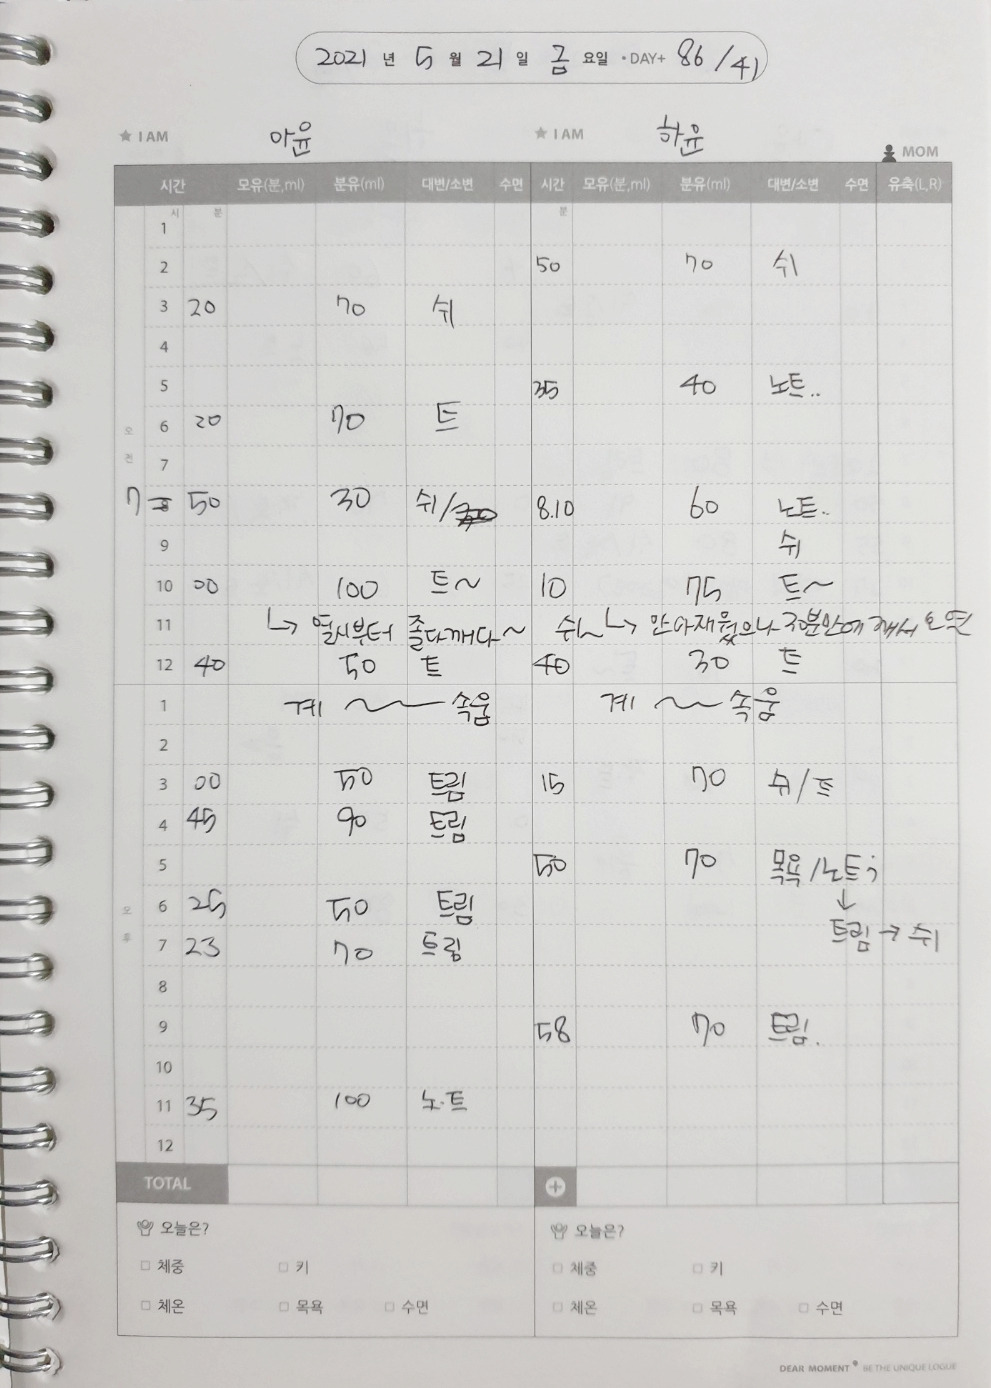 2021 년 5 월 21 일 금 요일 • DAY+ 86 / 41
★ I AM 아윤 ★ I AM 하윤 MOM
시간 모유(분,ml) 분유(ml) 대변/소변 수면 시간 모유(분,ml) 분유(ml) 대변/소변 수면 유축(L,R)
시 분 분
1
2 50 70 쉬
3 20 70 쉬
4
5 35 40 노트..
6 20 70 트
오전
7
7 8 50 30 쉬/ 8.10 60 노트..
9 쉬
10 00 100 트~ 10 75 트~
11 ↳ 열시부터 졸다깨다~ 쉬 ↳ 안아재웠으나 30분만에 깨서
12 40 50 트 40 30 트
1 계 ~~ 속움 계 ~~ 속움
2
3 00 50 트림 15 70 쉬/트
4 45 90 트림
5 50 70 목욕/노트;
6 25 50 트림 ↓
오후
7 23 70 트림 트림 → 쉬
8
9 58 70 트림.
10
11 35 100 노.트
12
TOTAL +
오늘은? 오늘은?
□ 체중 □ 키 □ 체중 □ 키
□ 체온 □ 목욕 □ 수면 □ 체온 □ 목욕 □ 수면
DEAR MOMENT BE THE UNIQUE LOGUE